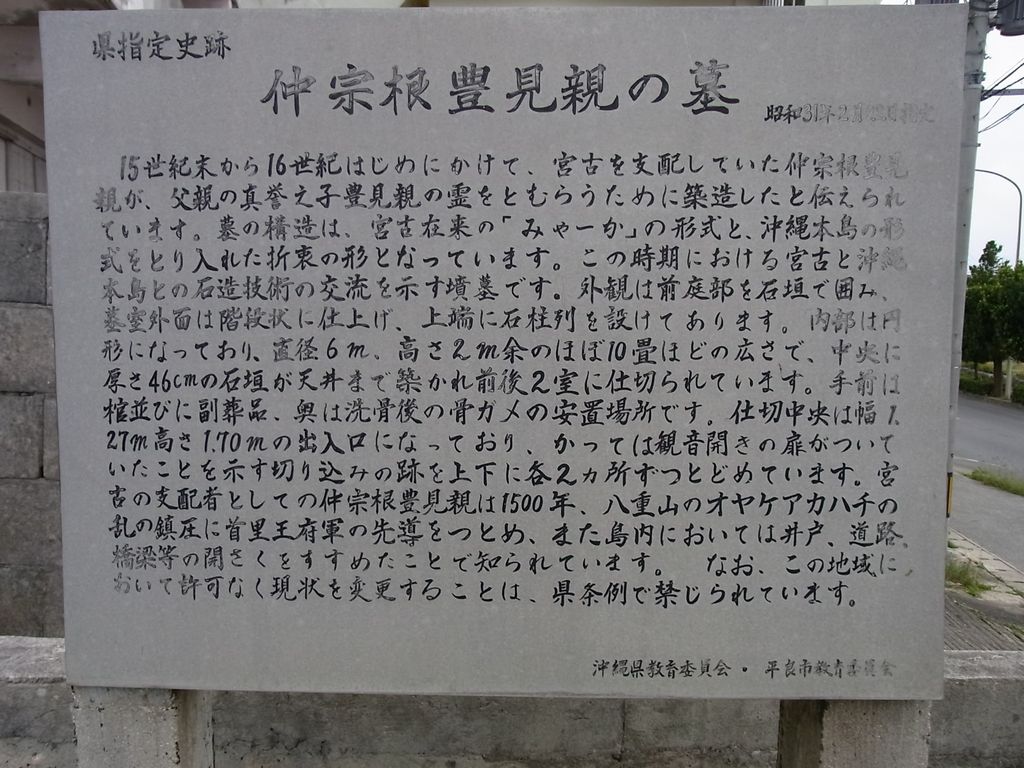 県指定史跡
仲宗根豊見親の墓
昭和31年2月22日指定
15世紀末から16世紀はじめにかけて、宮古を支配していた仲宗根豊見
親が、父親の真誉之子豊見親の霊をとむらうために築造したと伝えられ
ています。墓の構造は、宮古在来の「みゃーか」の形式と、沖縄本島の形
式をとり入れた折衷の形となっています。この時期における宮古と沖縄
本島との石造技術の交流を示す墳墓です。外観は前庭部を石垣で囲み、
墓室外面は階段状に仕上げ、上端に石柱列を設けてあります。内部は円
形になっており、直径6m、高さ2m余のほぼ10畳ほどの広さで、中央に
厚さ46cmの石垣が天井まで築かれ前後2室に仕切られています。手前は
棺並びに副葬品、奥は洗骨後の骨ガメの安置場所です。仕切中央は幅1.
27m高さ1.70mの出入口になっており、かっては観音開きの扉がついて
いたことを示す切り込みの跡を上下に各2ヵ所ずつとどめています。宮
古の支配者としての仲宗根豊見親は1500年、八重山のオヤケアカハチの
乱の鎮圧に首里王府軍の先導をつとめ、また島内においては井戸、道路、
橋梁等の開さくをすすめたことで知られています。 なお、この地域に
おいて許可なく現状を変更することは、県条例で禁じられています。
沖縄県教育委員会・平良市教育委員会